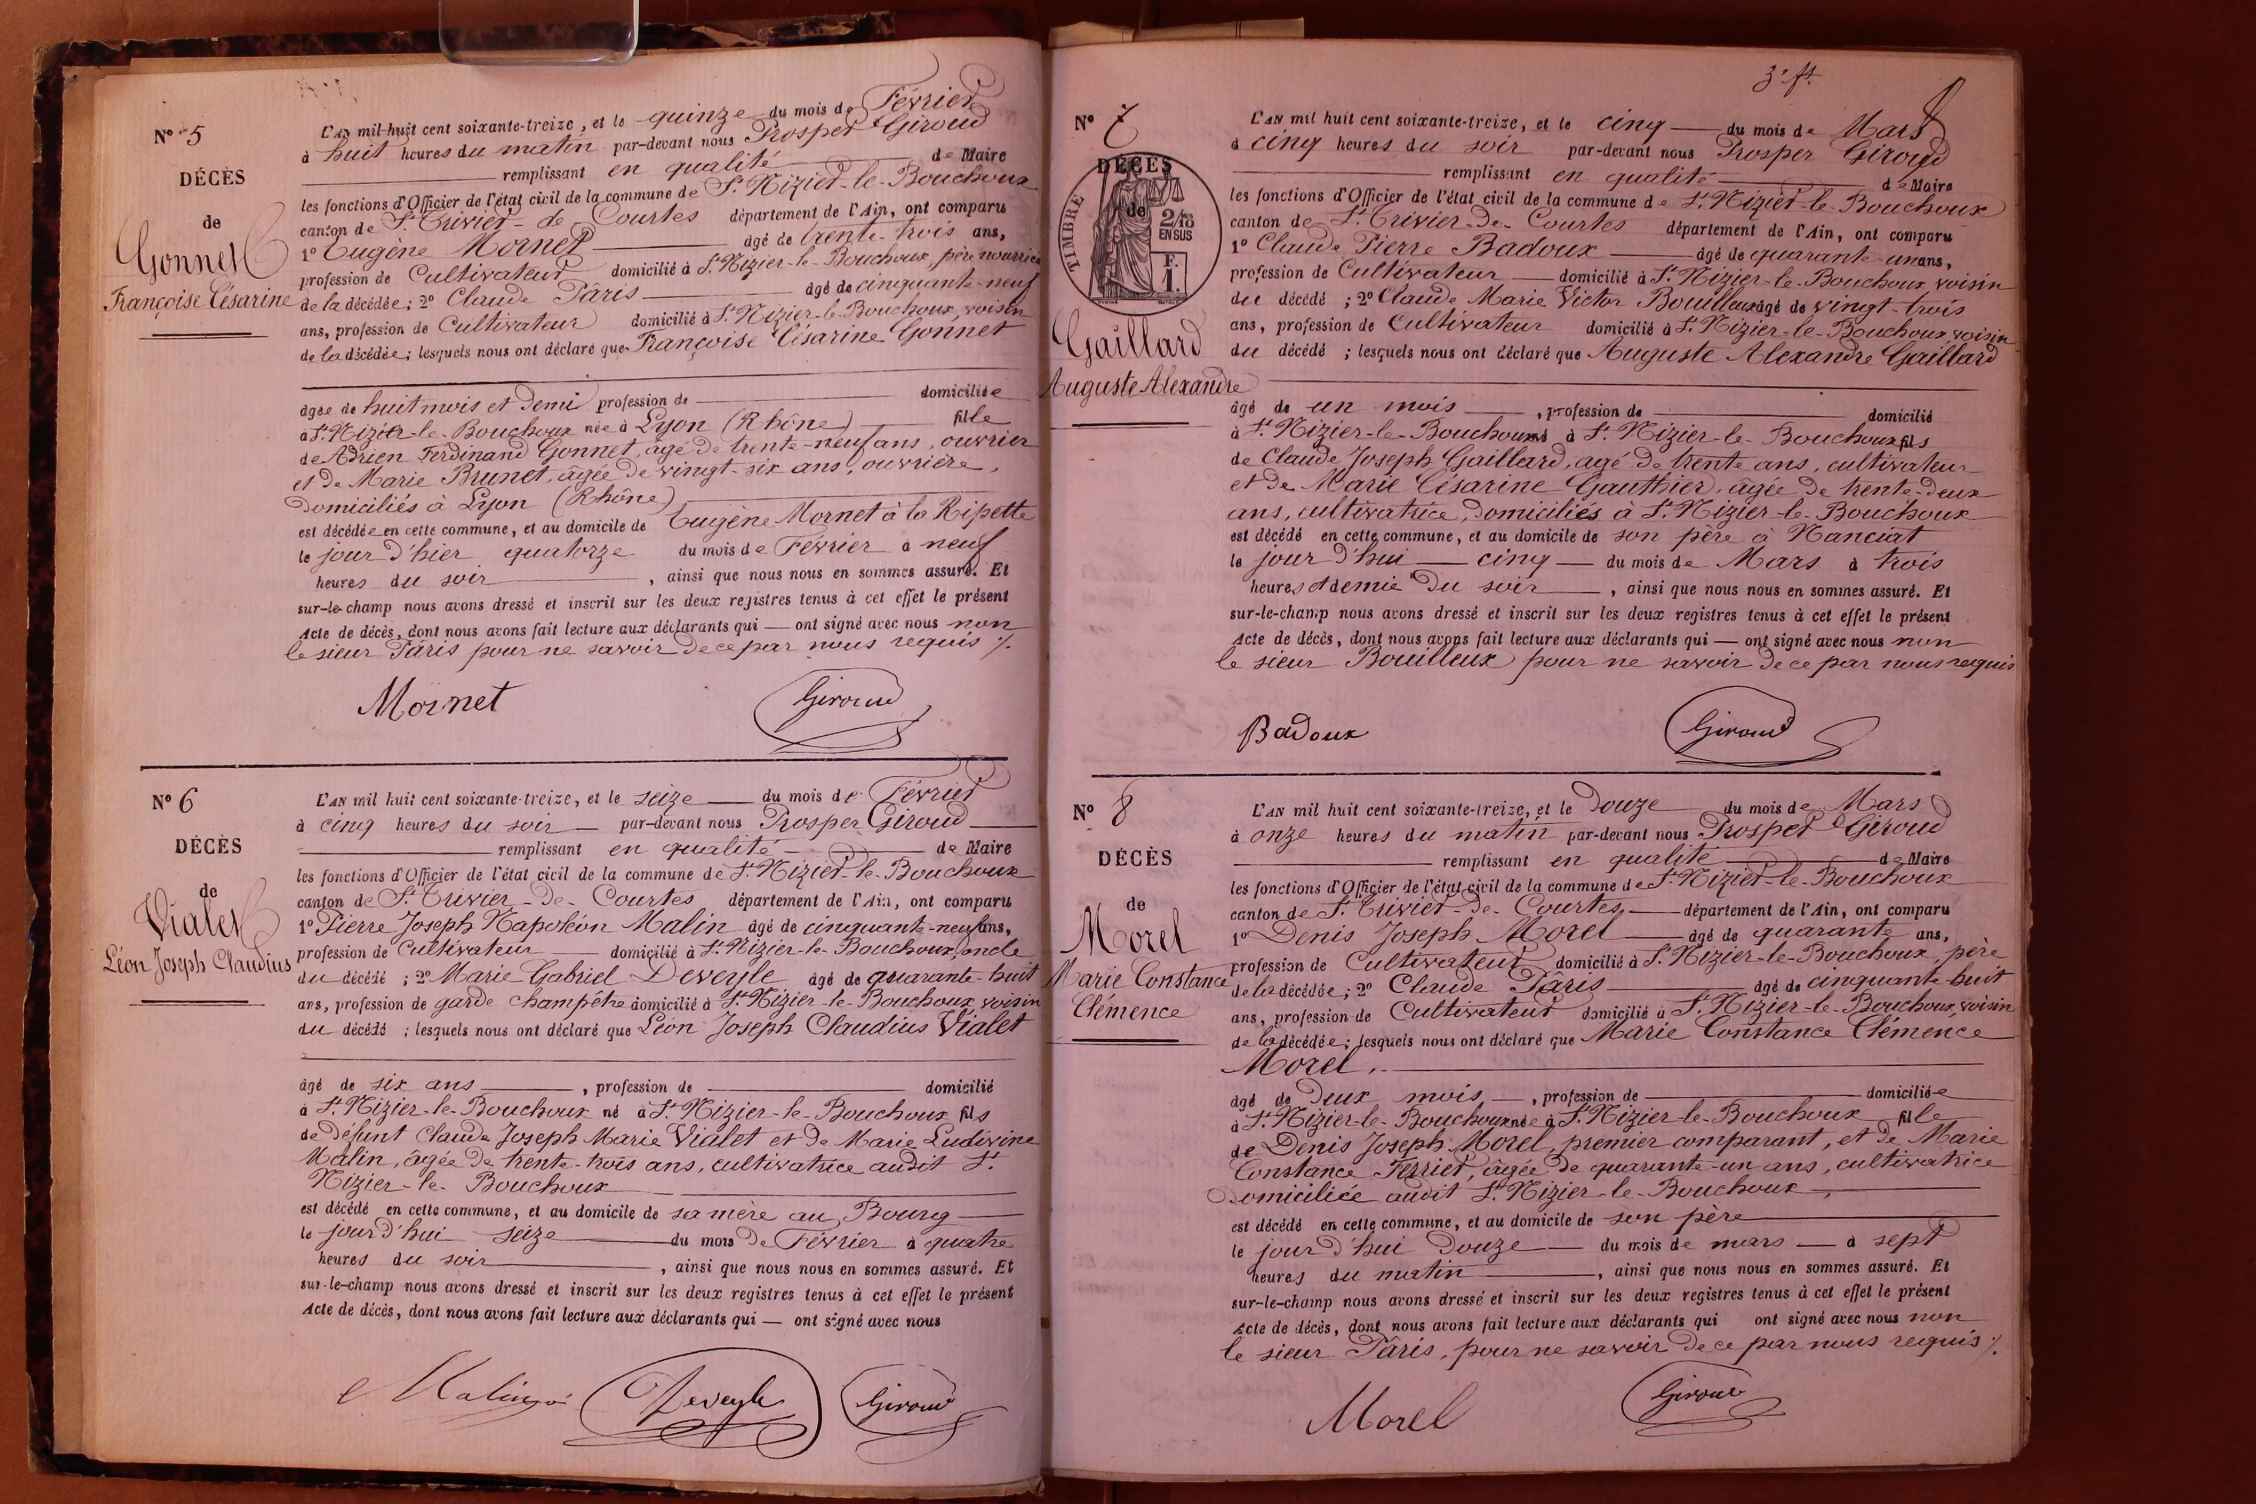 Nº 5
DÉCÈS
de
Gonnet
Françoise Césarine
L'AN mil huit cent soixante-treize, et le quinze du mois de Février
à huit heures du matin par-devant nous Prosper Giroud
remplissant en qualité de Maire
les fonctions d'Officier de l'état civil de la commune de St Nizier-le-Bouchoux
canton de St Trivier-de-Courtes département de l'Ain, ont comparu
1º Eugène Mornet âgé de trente-trois ans,
profession de Cultivateur domicilié à St Nizier-le-Bouchoux, père nourricier
de la décédée ; 2º Claude Pâris âgé de cinquante-neuf
ans, profession de Cultivateur domicilié à St Nizier-le-Bouchoux, voisin
de la décédée ; lesquels nous ont déclaré que Françoise Césarine Gonnet
âgée de huit mois et demi profession de domiciliée
à St Nizier-le-Bouchoux née à Lyon (Rhône) fille
de Adrien Ferdinand Gonnet, âgé de trente-neuf ans, ouvrier
et de Marie Brunet, âgée de vingt-six ans, ouvrière,
domiciliés à Lyon (Rhône)
est décédée en cette commune, et au domicile de Eugène Mornet à la Ripette
le jour d'hier quatorze du mois de Février à neuf
heures du soir, ainsi que nous nous en sommes assuré. Et
sur-le-champ nous avons dressé et inscrit sur les deux registres tenus à cet effet le présent
Acte de décès, dont nous avons fait lecture aux déclarants qui — ont signé avec nous non
le sieur Pâris pour ne savoir de ce par nous requis ./.
Mornet Giroud
Nº 6
DÉCÈS
de
Vialet
Léon Joseph Claudius
L'AN mil huit cent soixante-treize, et le seize du mois de Février
à cinq heures du soir par-devant nous Prosper Giroud
remplissant en qualité de Maire
les fonctions d'Officier de l'état civil de la commune de St Nizier-le-Bouchoux
canton de St Trivier-de-Courtes département de l'Ain, ont comparu
1º Pierre Joseph Napoléon Malin âgé de cinquante-neuf ans,
profession de Cultivateur domicilié à St Nizier-le-Bouchoux, oncle
du décédé ; 2º Marie Gabriel Deveyle âgé de quarante-huit
ans, profession de garde champêtre domicilié à St Nizier-le-Bouchoux, voisin
du décédé ; lesquels nous ont déclaré que Léon Joseph Claudius Vialet
âgé de six ans, profession de domicilié
à St Nizier-le-Bouchoux né à St Nizier-le-Bouchoux fils
de défunt Claude Joseph Marie Vialet et de Marie Ludivine
Malin, âgée de trente-trois ans, cultivatrice audit St
Nizier-le-Bouchoux
est décédé en cette commune, et au domicile de sa mère au Bourg
le jour d'hui seize du mois de Février à quatre
heures du soir, ainsi que nous nous en sommes assuré. Et
sur-le-champ nous avons dressé et inscrit sur les deux registres tenus à cet effet le présent
Acte de décès, dont nous avons fait lecture aux déclarants qui — ont signé avec nous
Malin Deveyle Giroud
3e ft
Nº 7
DÉCÈS
de
TIMBRE
2/10
EN SUS
F.
1.
Gaillard
Auguste Alexandre
L'AN mil huit cent soixante-treize, et le cinq du mois de Mars
à cinq heures du soir par-devant nous Prosper Giroud
remplissant en qualité de Maire
les fonctions d'Officier de l'état civil de la commune de St Nizier-le-Bouchoux
canton de St Trivier-de-Courtes département de l'Ain, ont comparu
1º Claude Pierre Badoux âgé de quarante-un ans,
profession de Cultivateur domicilié à St Nizier-le-Bouchoux, voisin
du décédé ; 2º Claude Marie Victor Bouilleux âgé de vingt-trois
ans, profession de Cultivateur domicilié à St Nizier-le-Bouchoux, voisin
du décédé ; lesquels nous ont déclaré que Auguste Alexandre Gaillard
âgé de un mois, profession de domicilié
à St Nizier-le-Bouchoux né à St Nizier-le-Bouchoux fils
de Claude Joseph Gaillard, âgé de trente ans, cultivateur
et de Marie Césarine Gauthier, âgée de trente-deux
ans, cultivatrice, domiciliés à St Nizier-le-Bouchoux
est décédé en cette commune, et au domicile de son père à Nanciat
le jour d'hui cinq du mois de Mars à trois
heures et demie du soir, ainsi que nous nous en sommes assuré. Et
sur-le-champ nous avons dressé et inscrit sur les deux registres tenus à cet effet le présent
Acte de décès, dont nous avons fait lecture aux déclarants qui — ont signé avec nous non
le sieur Bouilleux pour ne savoir de ce par nous requis
Badoux Giroud
Nº 8
DÉCÈS
de
Morel
Marie Constance
Clémence
L'AN mil huit cent soixante-treize, et le douze du mois de Mars
à onze heures du matin par-devant nous Prosper Giroud
remplissant en qualité de Maire
les fonctions d'Officier de l'état civil de la commune de St Nizier-le-Bouchoux
canton de St Trivier-de-Courtes département de l'Ain, ont comparu
1º Denis Joseph Morel âgé de quarante ans,
profession de Cultivateur domicilié à St Nizier-le-Bouchoux, père
de la décédée ; 2º Claude Pâris âgé de cinquante-huit
ans, profession de Cultivateur domicilié à St Nizier-le-Bouchoux, voisin
de la décédée ; lesquels nous ont déclaré que Marie Constance Clémence
Morel,
âgé de deux mois, profession de domiciliée
à St Nizier-le-Bouchoux née à St Nizier-le-Bouchoux fille
de Denis Joseph Morel, premier comparant, et de Marie
Constance Ferrier, âgée de quarante-un ans, cultivatrice
domiciliée audit St Nizier-le-Bouchoux,
est décédé en cette commune, et au domicile de son père
le jour d'hui douze du mois de mars à sept
heures du matin, ainsi que nous nous en sommes assuré. Et
sur-le-champ nous avons dressé et inscrit sur les deux registres tenus à cet effet le présent
Acte de décès, dont nous avons fait lecture aux déclarants qui ont signé avec nous non
le sieur Pâris, pour ne savoir de ce par nous requis ./.
Morel Giroud